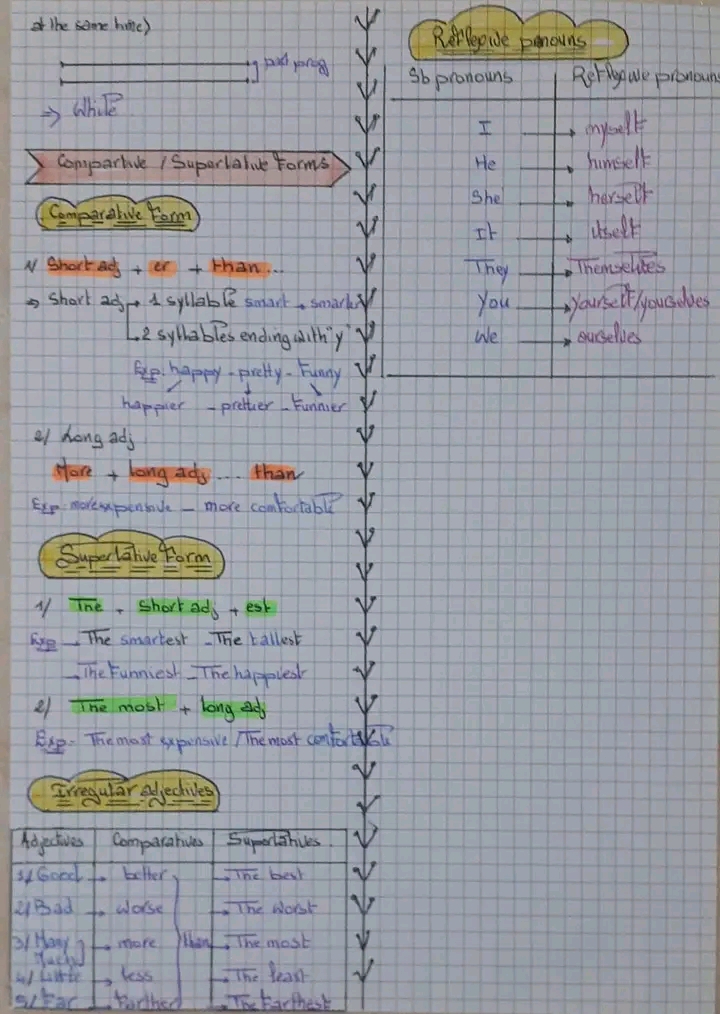 at the same time)
past prog
⇒ While
Compartive / Superlative Forms
Comparative Form
1/ Short adj + er + than...
⇒ Short adj → 1 syllable smart → smarter
→ 2 syllables ending with "y"
Exp: happy - pretty - Funny
happier - prettier - Funnier
2/ Long adj
More + long adj .... than
Exp: more expensive - more comfortable
Superlative Form
1/ The + Short adj + est
Exp → The smartest - The tallest
→ The Funniest - The happiest
2/ The most + long adj
Exp: The most expensive / The most confortable
Irregular adjectives
Adjectives Comparatives Superlatives
1/ Good → better → The best
2/ Bad → worse → The Worst
3/ Many → more than → The most
Much
4/ Little → less → The least
5/ Far → Farther → The Farthest
Reflexive pronouns
Sb pronouns Reflexive pronouns
I → myself
He → himself
She → herself
It → itself
They → Themselves
You → yourself/yourselves
We → ourselves